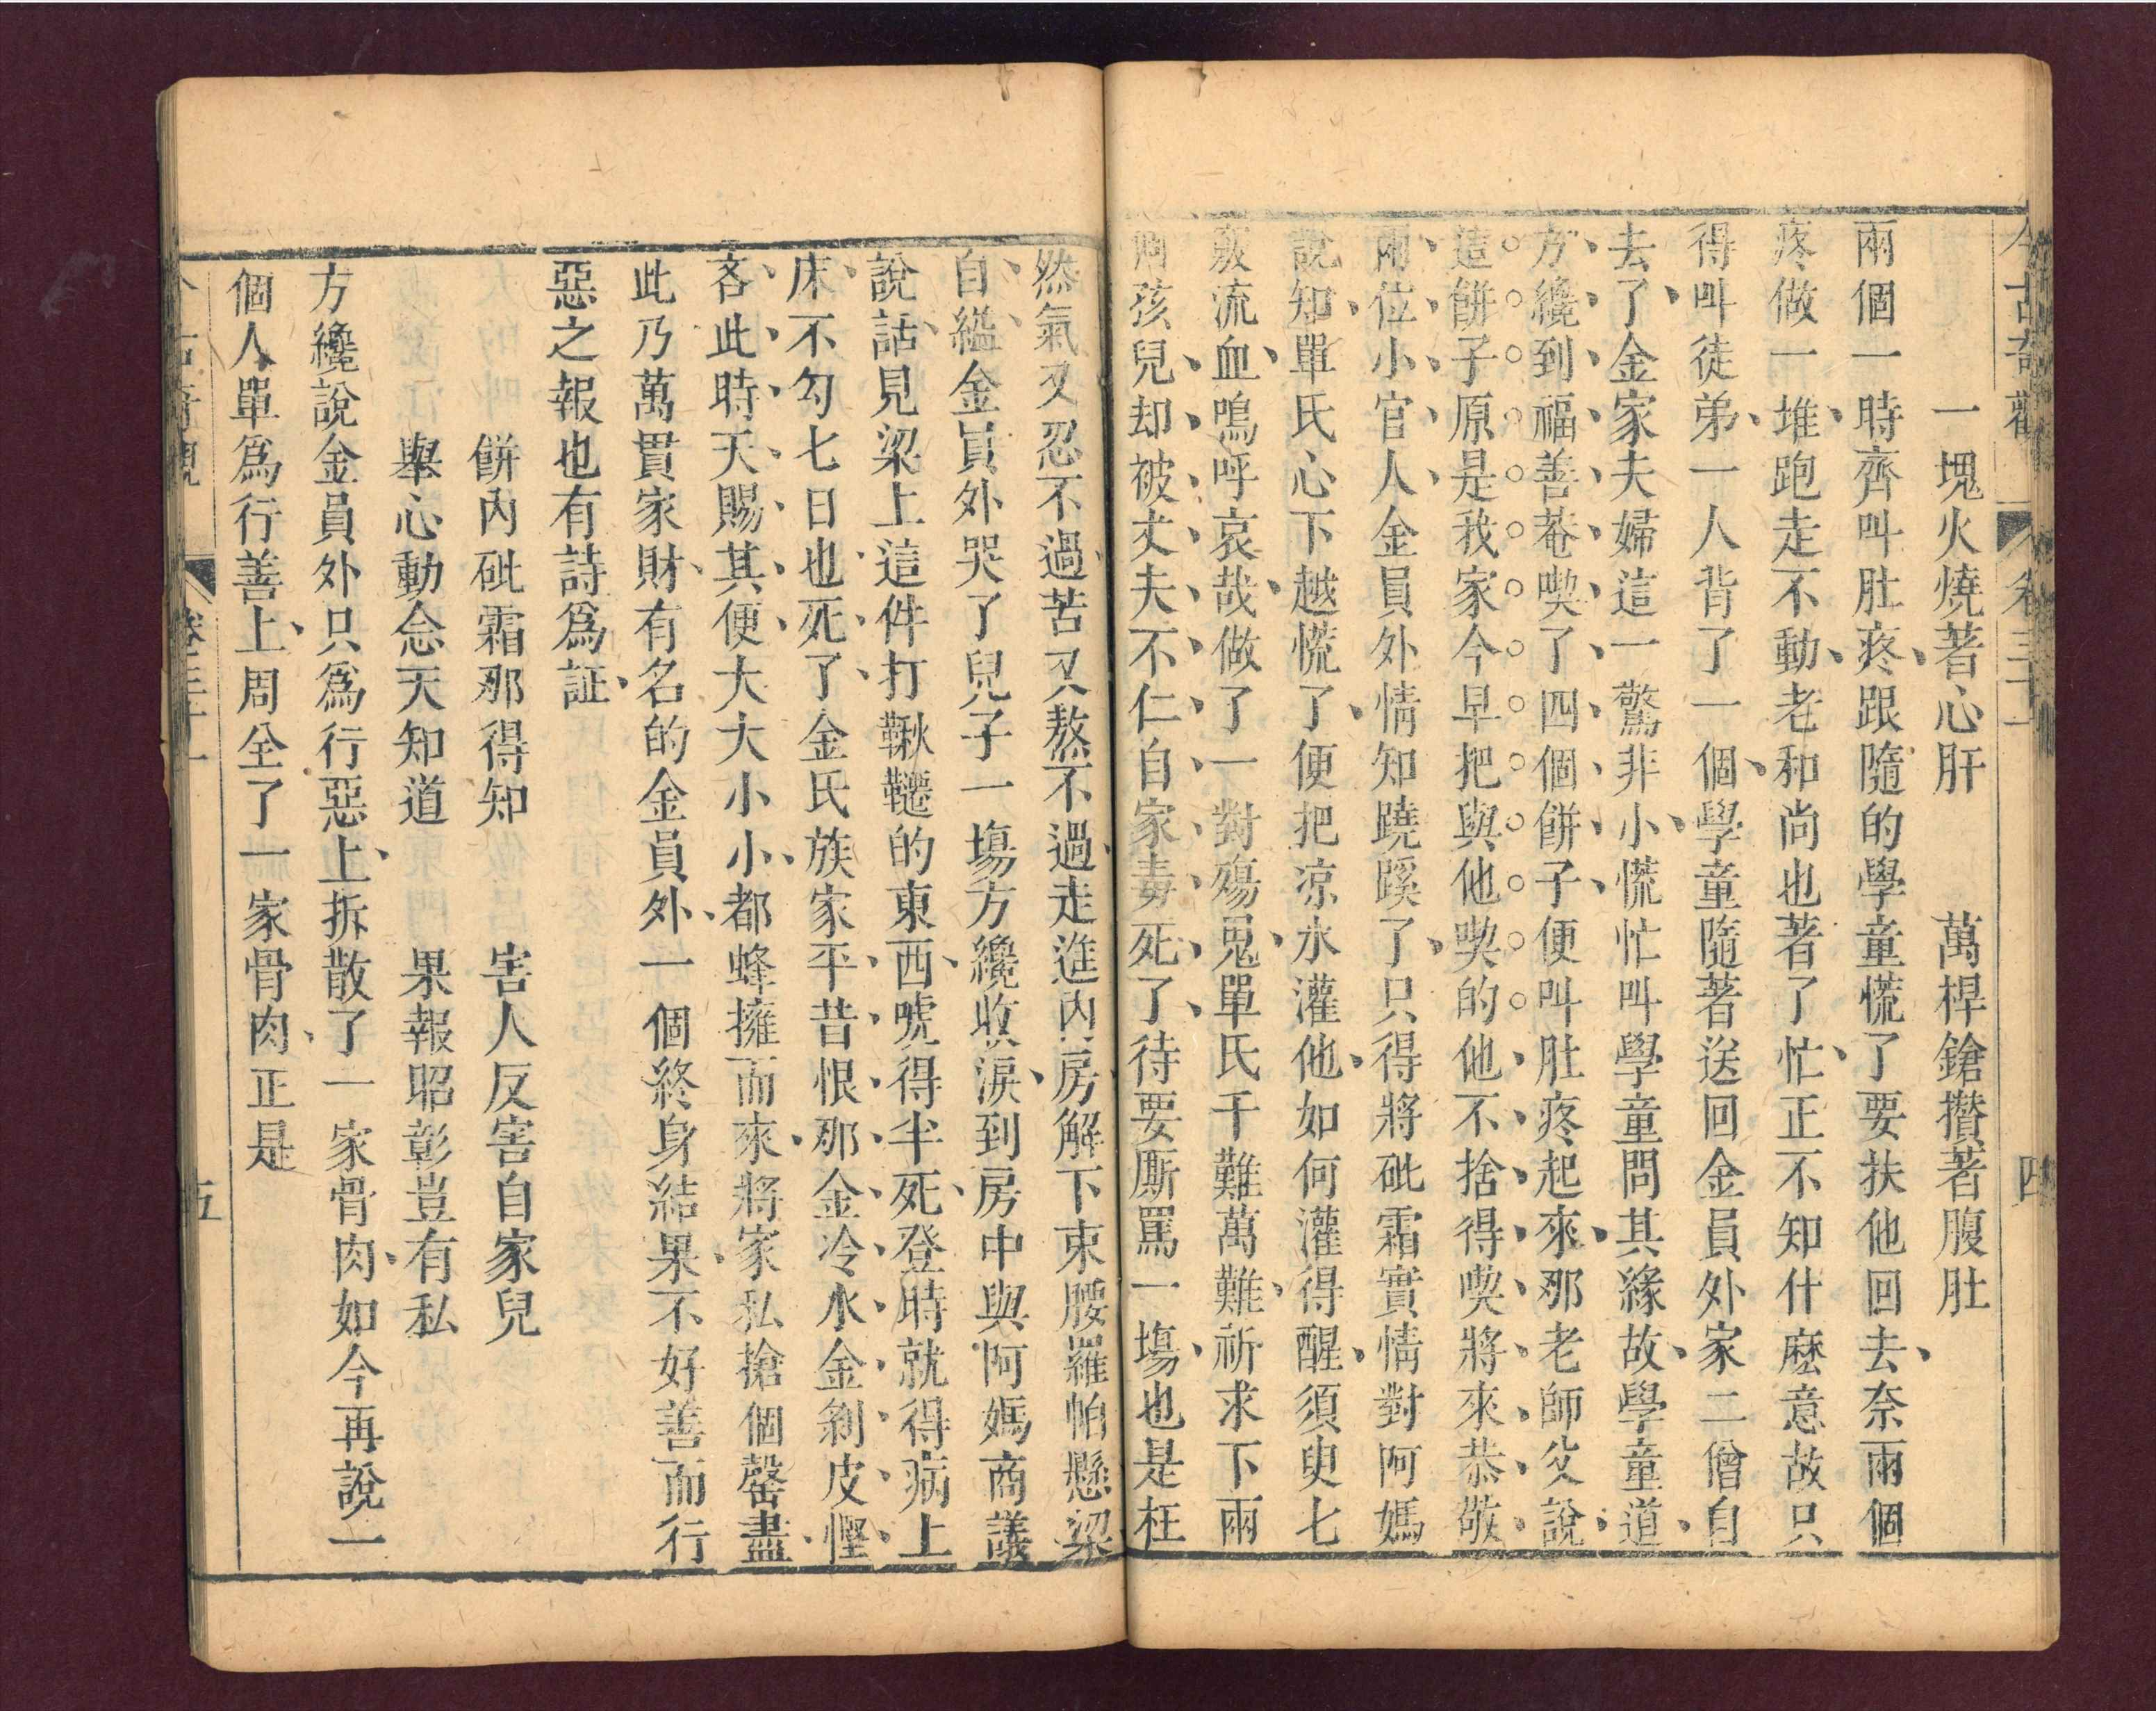 今古奇觀 卷三十一 四
一塊火燒著心肝 萬桿鎗攢著腹肚
兩個一時齊叫肚疼跟隨的學童慌了要扶他回去奈兩個
疼做一堆跑走不動老和尚也著了忙正不知什麽意故只
得叫徒弟一人背了一個學童隨著送回金員外家二僧自
去了金家夫婦這一驚非小慌忙叫學童問其緣故學童道
方纔到福善菴喫了四個餅子便叫肚疼起來那老師父說
這餅子原是我家今早把與他喫的他不捨得喫將來恭敬
兩位小官人金員外情知蹺蹊了只得將砒霜實情對阿媽
說知單氏心下越慌了便把凉水灌他如何灌得醒須臾七
竅流血嗚呼哀哉做了一對殤鬼單氏千難萬難祈求下兩
個孩兒却被丈夫不仁自家毒死了待要厮罵一塲也是枉
然氣又忍不過苦又熬不過走進內房解下束腰羅帕懸梁
自縊金員外哭了兒子一塲方纔收淚到房中與阿媽商議
說話見梁上這件打鞦韆的東西唬得半死登時就得病上
床不勾七日也死了金氏族家平昔恨那金冷水金剝皮慳
吝此時天賜其便大大小小都蜂擁而來將家私搶個罄盡
此乃萬貫家財有名的金員外一個終身結果不好善而行
惡之報也有詩爲証
餅內砒霜那得知 害人反害自家兒
舉心動念天知道 果報昭彰豈有私
方纔說金員外只爲行惡上拆散了一家骨肉如今再說一
個人單爲行善上周全了一家骨肉正是
今古奇觀 卷三十一 五